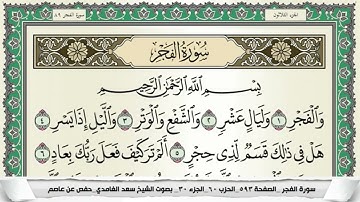 الجزء الثلاثون
سورة الفجر ٨٩
سُورَةُ الفَجْرِ
بِسْمِ اللَّهِ الرَّحْمَٰنِ الرَّحِيمِ
وَالْفَجْرِ ١ وَلَيَالٍ عَشْرٍ ٢ وَالشَّفْعِ وَالْوَتْرِ ٣ وَاللَّيْلِ إِذَا يَسْرِ ٤
هَلْ فِي ذَٰلِكَ قَسَمٌ لِّذِي حِجْرٍ ٥ أَلَمْ تَرَ كَيْفَ فَعَلَ رَبُّكَ بِعَادٍ ٦
سورة الفجر _ الصفحة ٥٩٣ _ الحزب ٦٠ _ الجزء ٣٠ _ بصوت الشيخ سعد الغامدي_ حفص عن عاصم